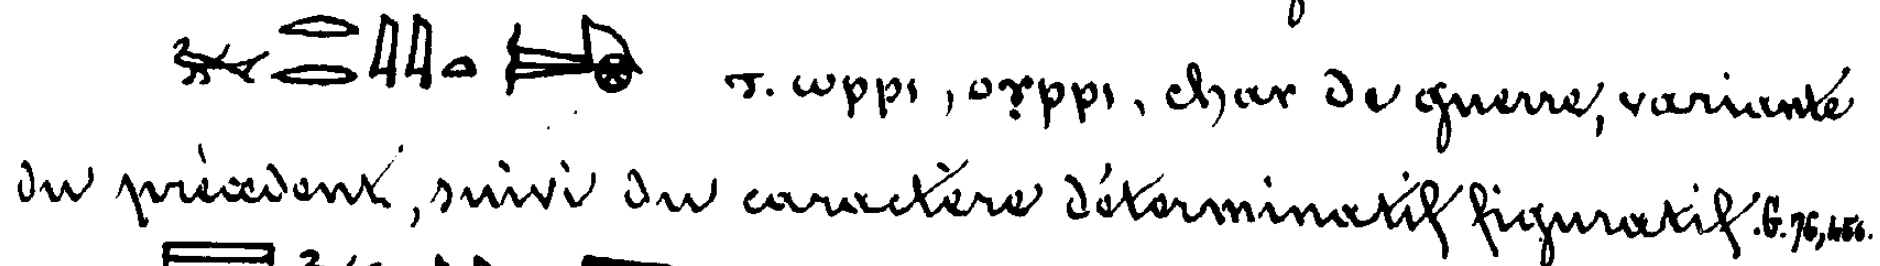 ⲧ. ⲱⲣⲣⲓ, ⲟⲩⲣⲣⲓ, char de guerre, variante
du précédent, suivi du caractère déterminatif figuratif. G. 76,